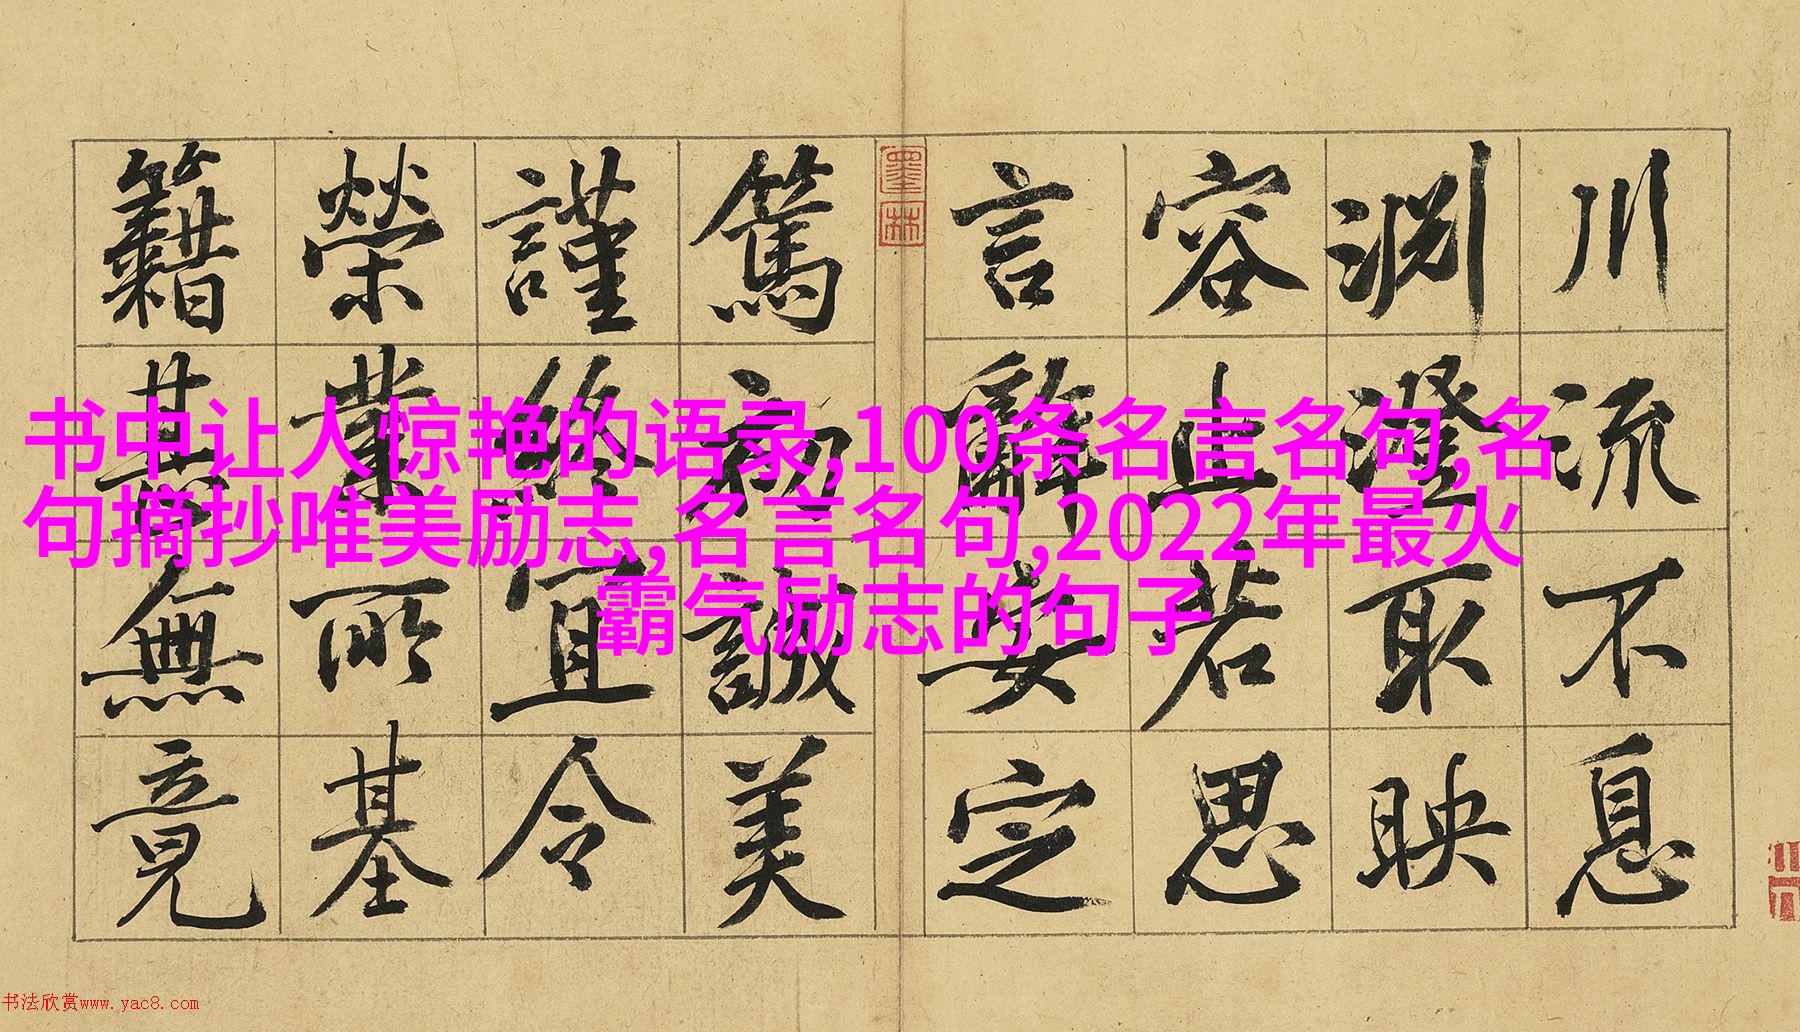 川流不息
淵澄取映
容止若思
言辭安定
墨林
篤初誠美
謹終宜令
榮業所基
籍甚無竟
书中让人惊艳的语录,100条名言名句,名
句摘抄唯美励志,名言名句,2022年最火
霸气励志的句子
书法欣赏www.yac8.com